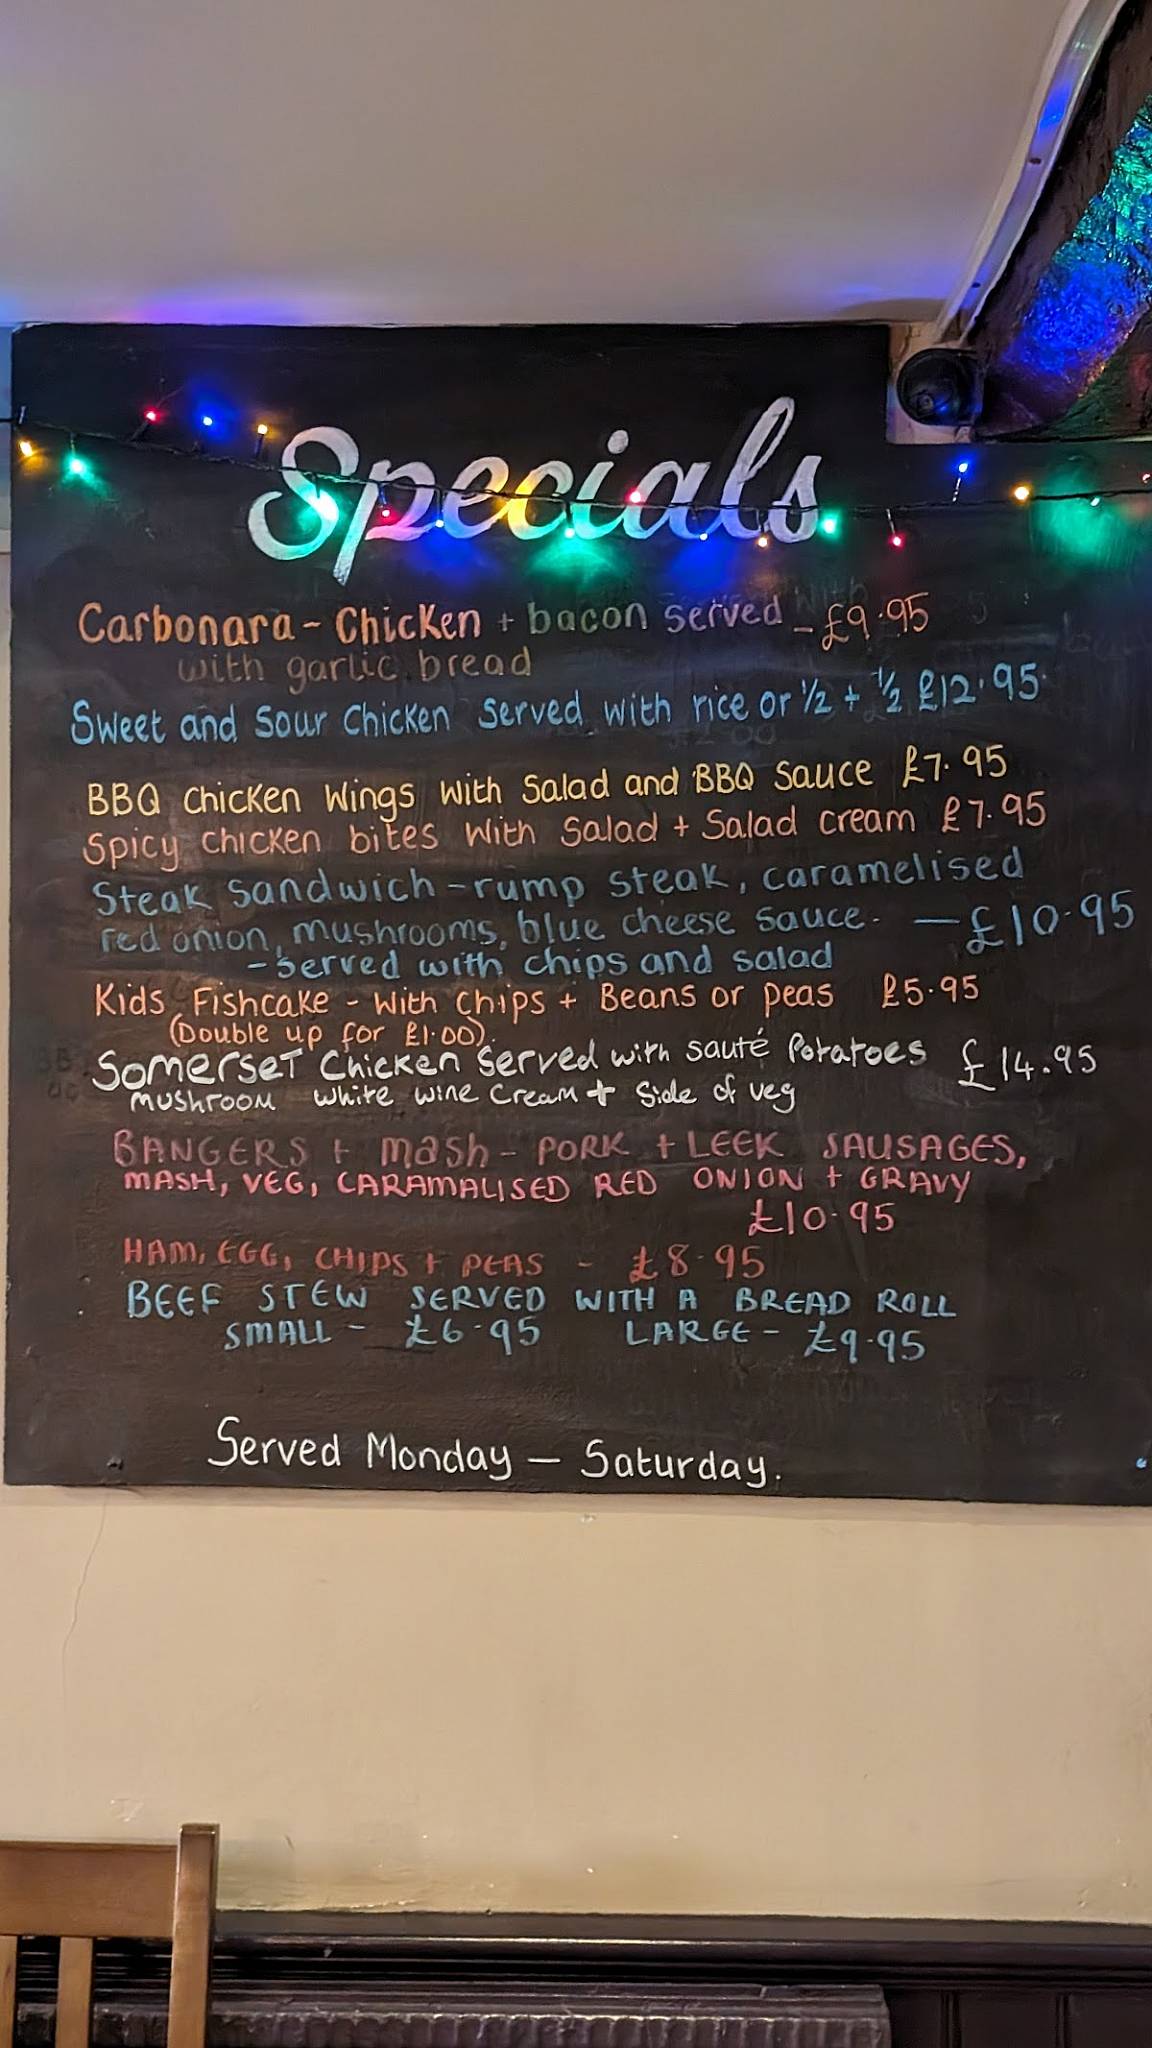 Specials
Carbonara - Chicken + bacon served - £9.95
with garlic bread
Sweet and Sour Chicken Served with rice or ½ + ½ £12.95
BBQ Chicken Wings With Salad and BBQ Sauce £7.95
Spicy Chicken bites With Salad + Salad cream £7.95
Steak Sandwich - rump steak, caramelised
red onion, mushrooms, blue cheese sauce. — £10.95
- served with chips and salad
Kids Fishcake - With chips + Beans or peas £5.95
(Double up for £1.00)
Somerset Chicken Served with sauté Potatoes £14.95
Mushroom white wine Cream + Side of veg
BANGERS + mash - PORK + LEEK SAUSAGES,
MASH, VEG, CARAMALISED RED ONION + GRAVY
£10.95
HAM, EGG, CHIPS + PEAS - £8.95
BEEF STEW SERVED WITH A BREAD ROLL
SMALL - £6.95 LARGE - £9.95
Served Monday — Saturday.